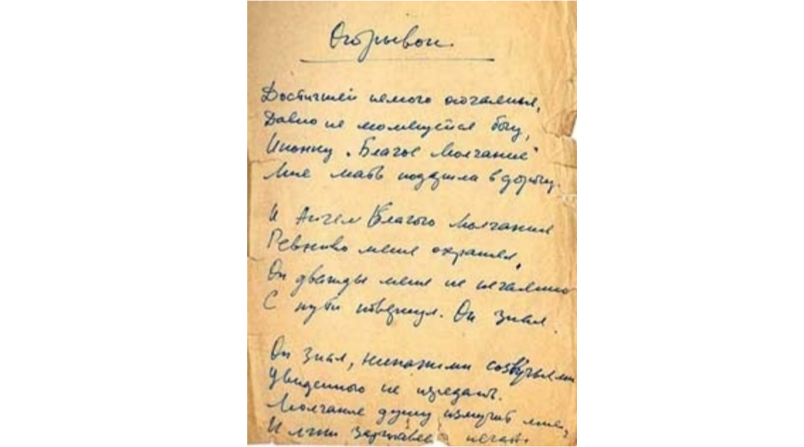 Отрывок.
Достигшей немого отчаянья,
Давно не молящейся богу,
Иконку „Благое Молчание"
Мне мать подарила в дорогу.
И Ангел Благого Молчания
Ревниво меня охранял.
Он дважды меня не нечаянно
С пути отвернул. Он знал.
Он знал, никакими созвучьями
Увиденного не передать.
Молчание душу измучит мне,
И лишь заржавеет печать